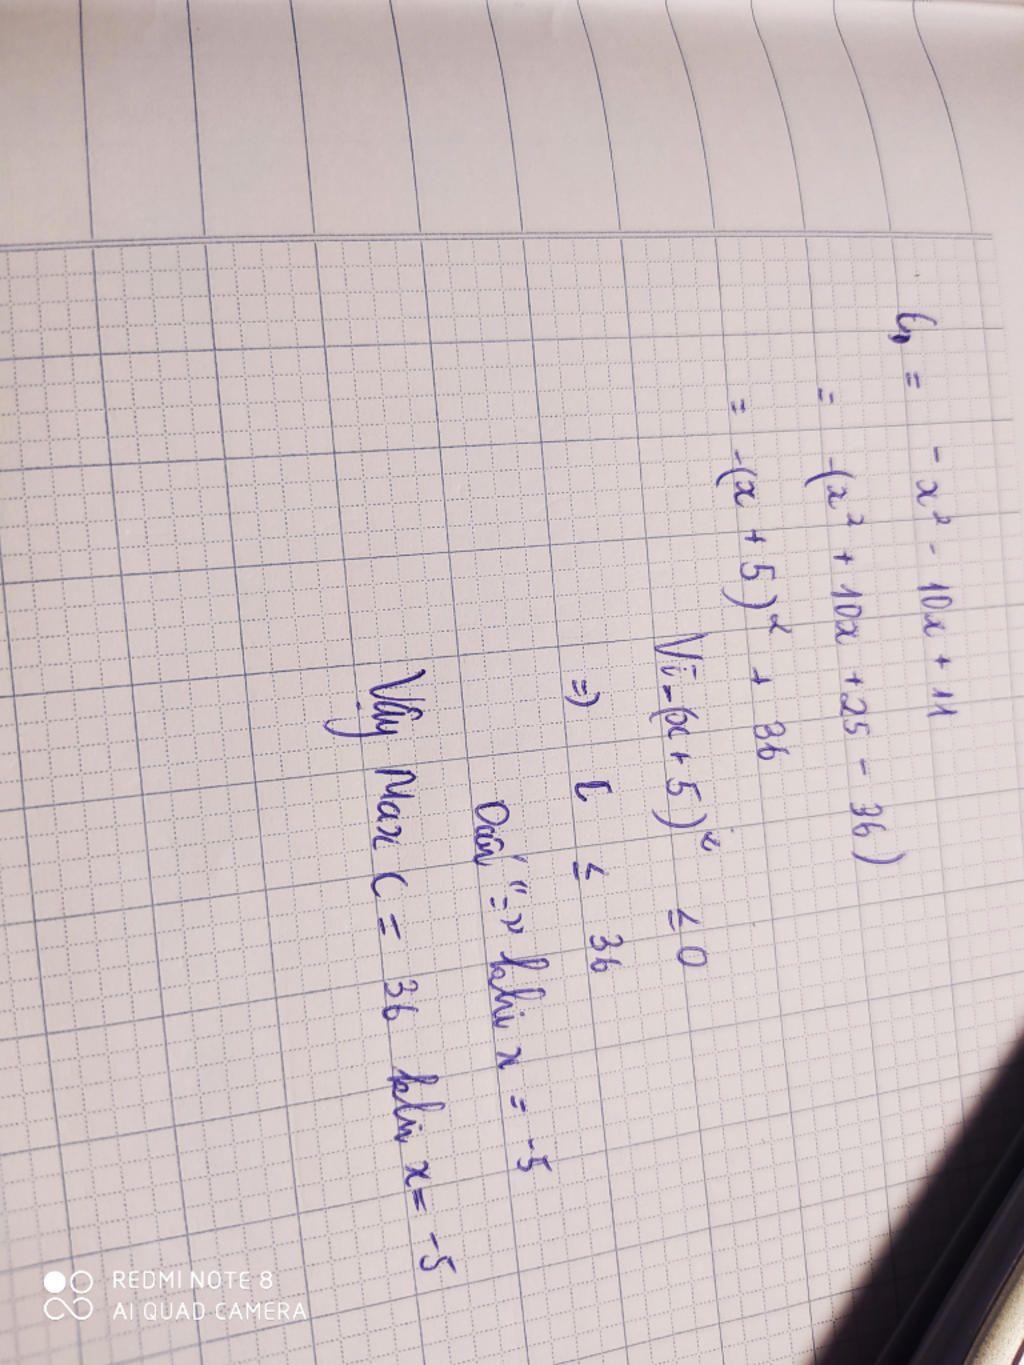 C = -x² - 10x + 11
= -(x² + 10x + 25 - 36)
= -(x + 5)² + 36
Vì -(x + 5)² ≤ 0
=> C ≤ 36
Dấu "=" khi x = -5
Vậy Max C = 36 khi x = -5
REDMI NOTE 8
AI QUAD CAMERA